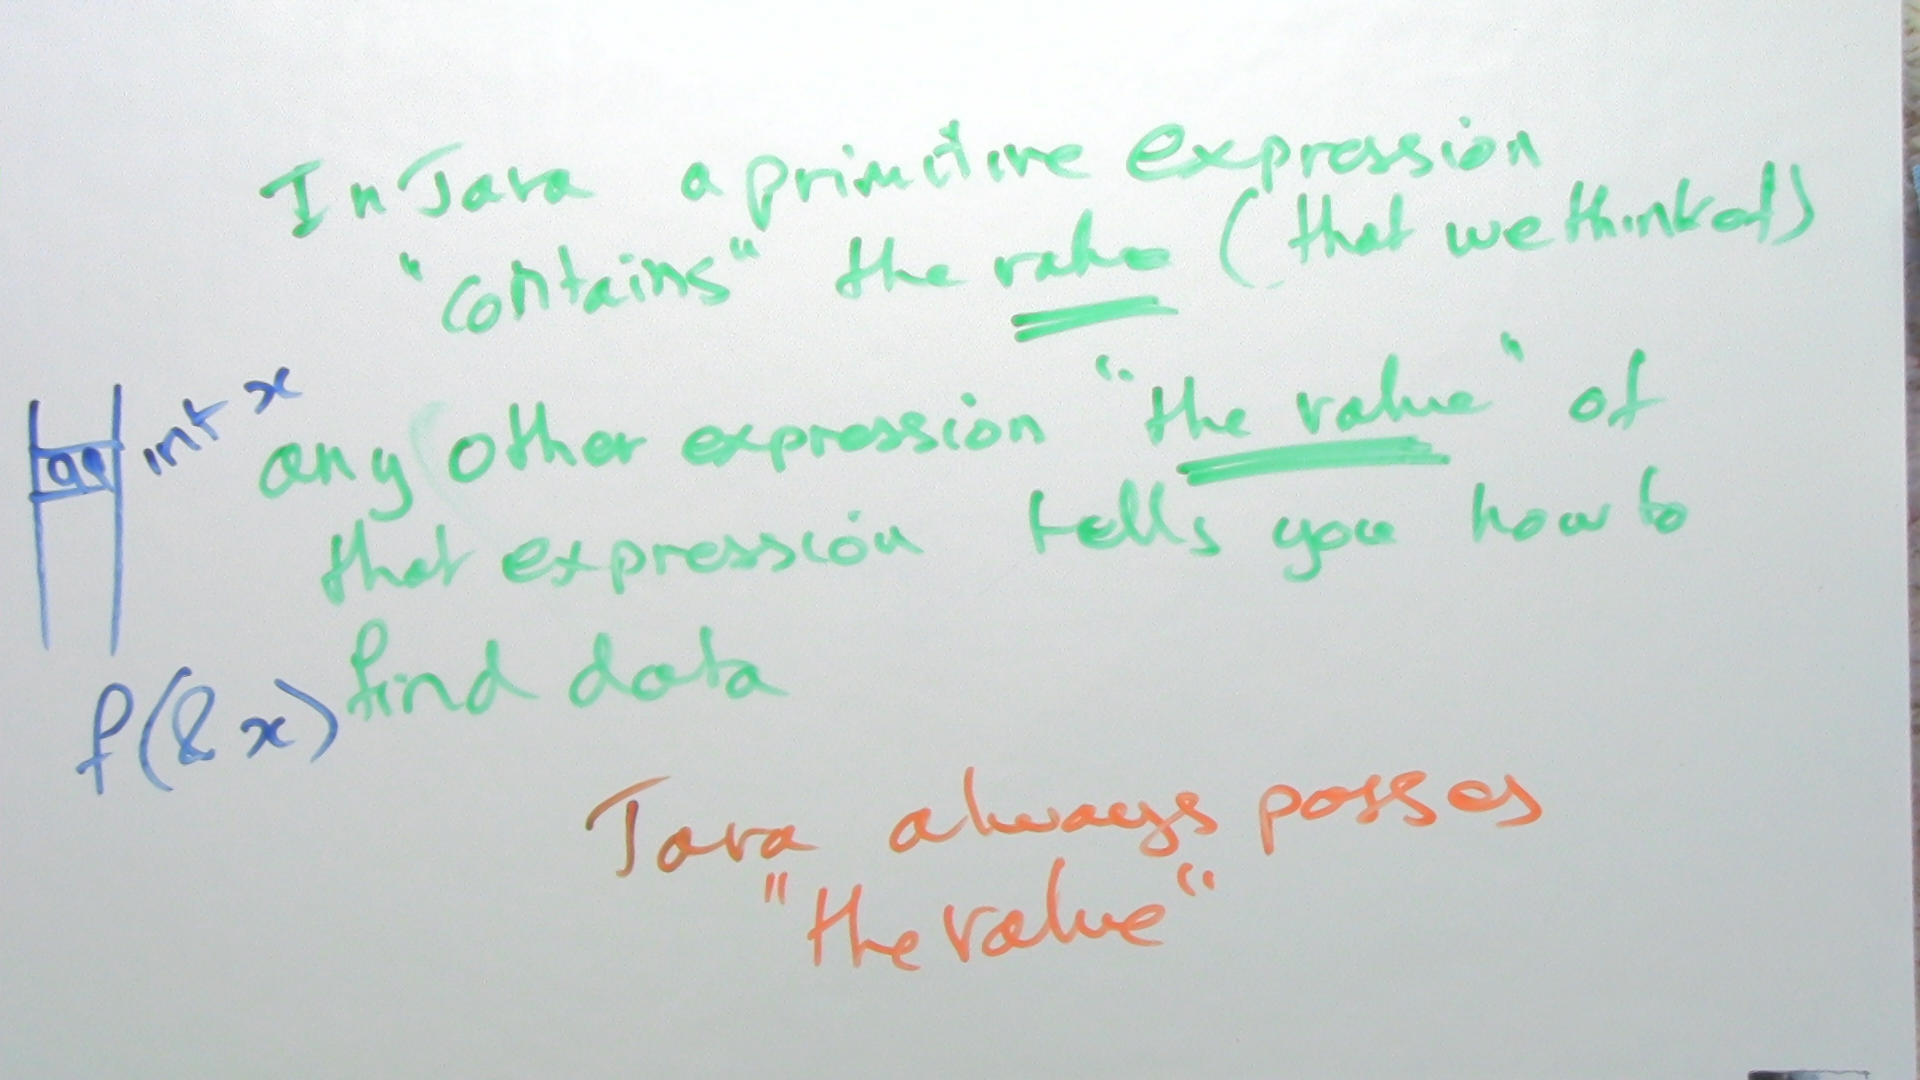 In Java a primitive expression
"contains" the value (that we think of)
int x
99
any other expression "the value" of
that expression tells you how to
find data
f(&x)
Java always passes
"the value"